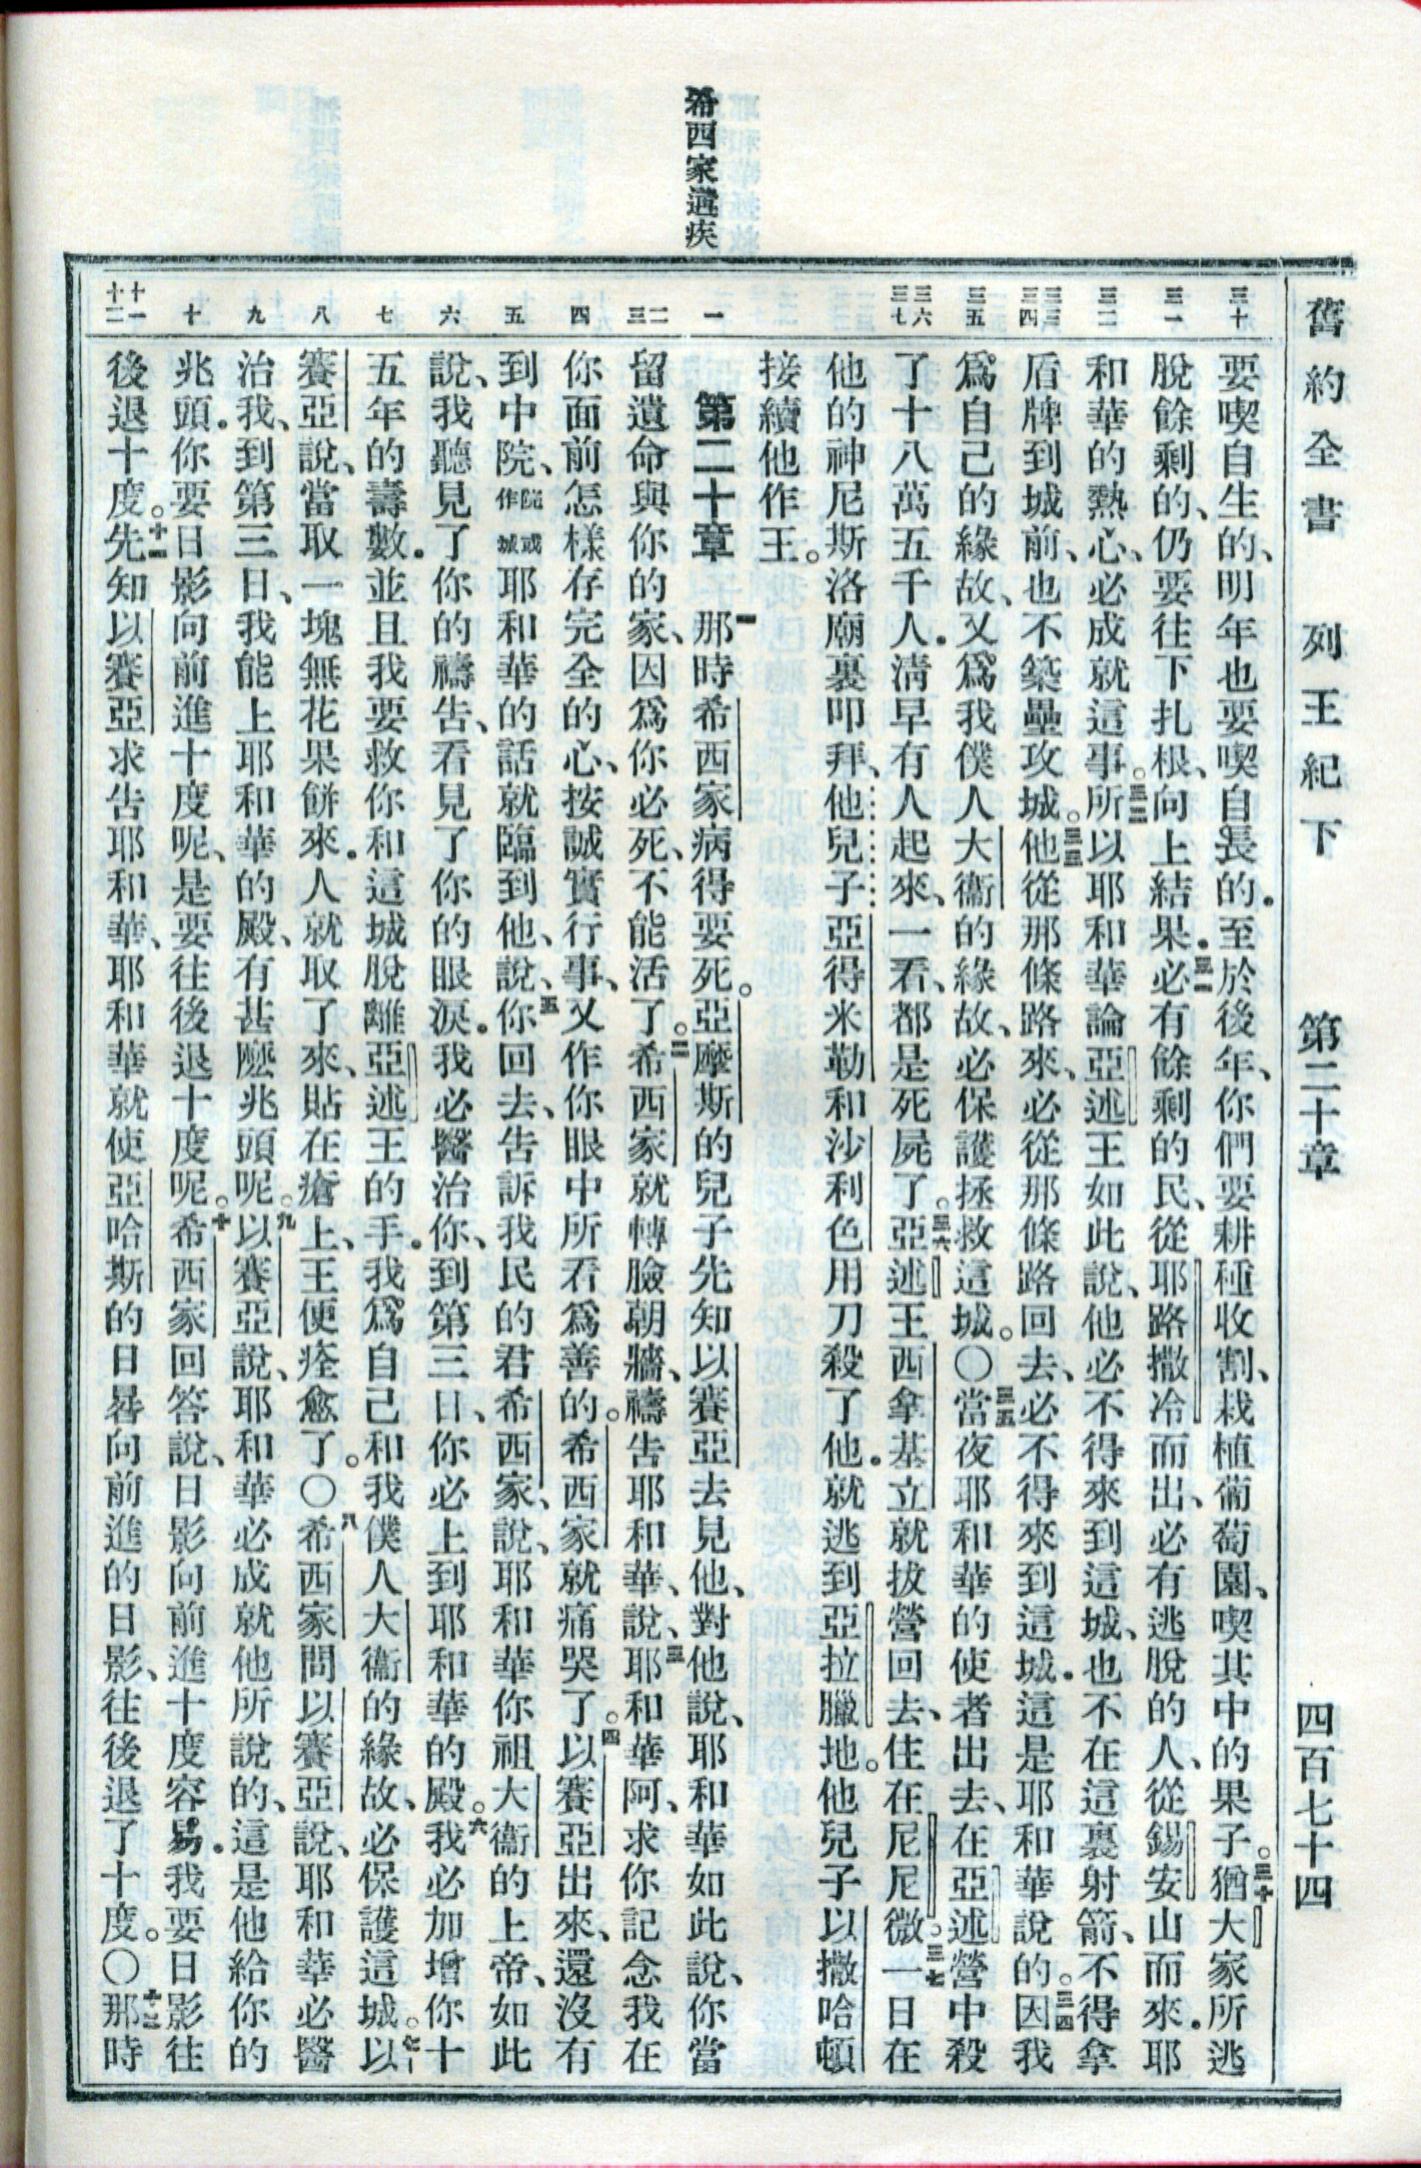 舊約全書　列王紀下　第二十章　四百七十四
希西家遘疾
三十
三一
三二
三三 三四
三五
三六 三七
一
二 三
四
五
六
七
八
九
十
十一 十二
要喫自生的、明年也要喫自長的．至於後年、你們要耕種收割、栽植葡萄園、喫其中的果子。三十猶大家所逃
脫餘剩的、仍要往下扎根、向上結果．三一必有餘剩的民、從耶路撒冷而出、必有逃脫的人、從錫安山而來．耶
和華的熱心、必成就這事。三二所以耶和華論亞述王如此說、他必不得來到這城、也不在這裏射箭、不得拿
盾牌到城前、也不築壘攻城。三三他從那條路來、必從那條路回去、必不得來到這城．這是耶和華說的。三四因我
爲自己的緣故、又爲我僕人大衞的緣故、必保護拯救這城。〇三五當夜耶和華的使者出去、在亞述營中殺
了十八萬五千人．清早有人起來、一看、都是死屍了。三六亞述王西拿基立就拔營回去、住在尼尼微。三七一日在
他的神尼斯洛廟裏叩拜、他兒子亞得米勒和沙利色用刀殺了他．就逃到亞拉臘地。他兒子以撒哈頓
接續他作王。
第二十章　一那時希西家病得要死。亞摩斯的兒子先知以賽亞去見他、對他說、耶和華如此說、你當
留遺命與你的家、因爲你必死、不能活了。二希西家就轉臉朝牆、禱告耶和華、說、三耶和華阿、求你記念我在
你面前怎樣存完全的心、按誠實行事、又作你眼中所看爲善的。希西家就痛哭了。四以賽亞出來、還沒有
到中院、院或作城耶和華的話就臨到他、說、五你回去、告訴我民的君希西家、說、耶和華你祖大衞的上帝、如此
說、我聽見了你的禱告、看見了你的眼淚．我必醫治你、到第三日、你必上到耶和華的殿。六我必加增你十
五年的壽數．並且我要救你和這城脫離亞述王的手．我爲自己和我僕人大衞的緣故、必保護這城。七以
賽亞說、當取一塊無花果餅來．人就取了來、貼在瘡上、王便痊愈了。〇八希西家問以賽亞說、耶和華必醫
治我、到第三日、我能上耶和華的殿、有甚麼兆頭呢。九以賽亞說、耶和華必成就他所說的、這是他給你的
兆頭．你要日影向前進十度呢、是要往後退十度呢。十希西家回答說、日影向前進十度容易．我要日影往
後退十度。十一先知以賽亞求告耶和華、耶和華就使亞哈斯的日晷向前進的日影、往後退了十度。〇十二那時